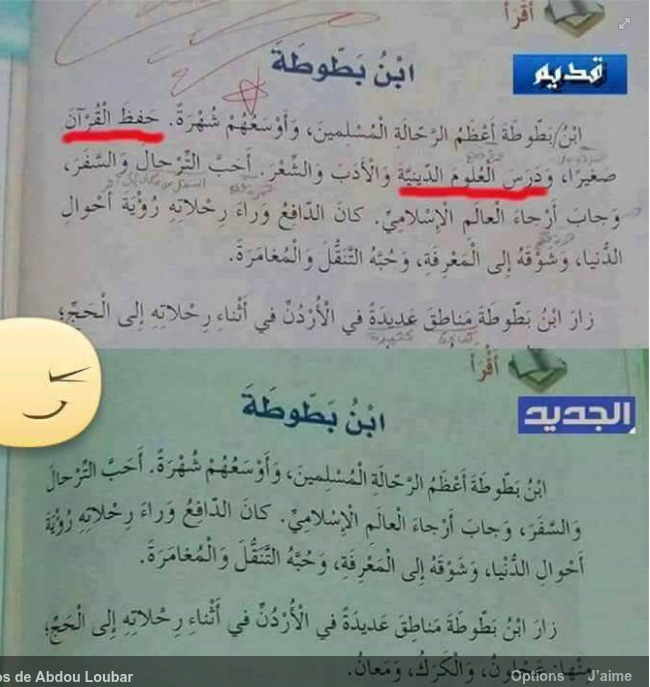 أَقْرَأُ
قديم
ابْنُ بَطّوطَةَ
ابْنُ بَطّوطَةَ أَعْظَمُ الرَّحّالَةِ الْمُسْلِمينَ، وَأَوْسَعُهُمْ شُهْرَةً. حَفِظَ الْقُرْآنَ
صَغيرًا، وَدَرَسَ الْعُلومَ الدّينِيَّةَ وَالْأَدَبَ وَالشِّعْرَ. أَحَبَّ التِّرْحالَ وَالسَّفَرَ،
وَجابَ أَرْجاءَ الْعالَمِ الْإِسْلامِيِّ. كانَ الدّافِعُ وَراءَ رِحْلاتِهِ رُؤْيَةَ أَحْوالِ
الدُّنْيا، وَشَوْقَهُ إِلى الْمَعْرِفَةِ، وَحُبَّهُ التَّنَقُّلَ وَالْمُغامَرَةَ.
زارَ ابْنُ بَطّوطَةَ مَناطِقَ عَديدَةً في الْأُرْدُنِّ في أَثْناءِ رِحْلاتِهِ إِلى الْحَجِّ؛
كثيرة
أَقْرَأُ
الجديد
ابْنُ بَطّوطَةَ
ابْنُ بَطّوطَةَ أَعْظَمُ الرَّحّالَةِ الْمُسْلِمينَ، وَأَوْسَعُهُمْ شُهْرَةً. أَحَبَّ التِّرْحالَ
وَالسَّفَرَ، وَجابَ أَرْجاءَ الْعالَمِ الْإِسْلامِيِّ. كانَ الدّافِعُ وَراءَ رِحْلاتِهِ رُؤْيَةَ
أَحْوالِ الدُّنْيا، وَشَوْقَهُ إِلى الْمَعْرِفَةِ، وَحُبَّهُ التَّنَقُّلَ وَالْمُغامَرَةَ.
زارَ ابْنُ بَطّوطَةَ مَناطِقَ عَديدَةً في الْأُرْدُنِّ في أَثْناءِ رِحْلاتِهِ إِلى الْحَجِّ؛
مِنْها: عَجْلونُ، وَالْكَرَكُ، وَمَعانُ.
os de Abdou Loubar Options J’aime